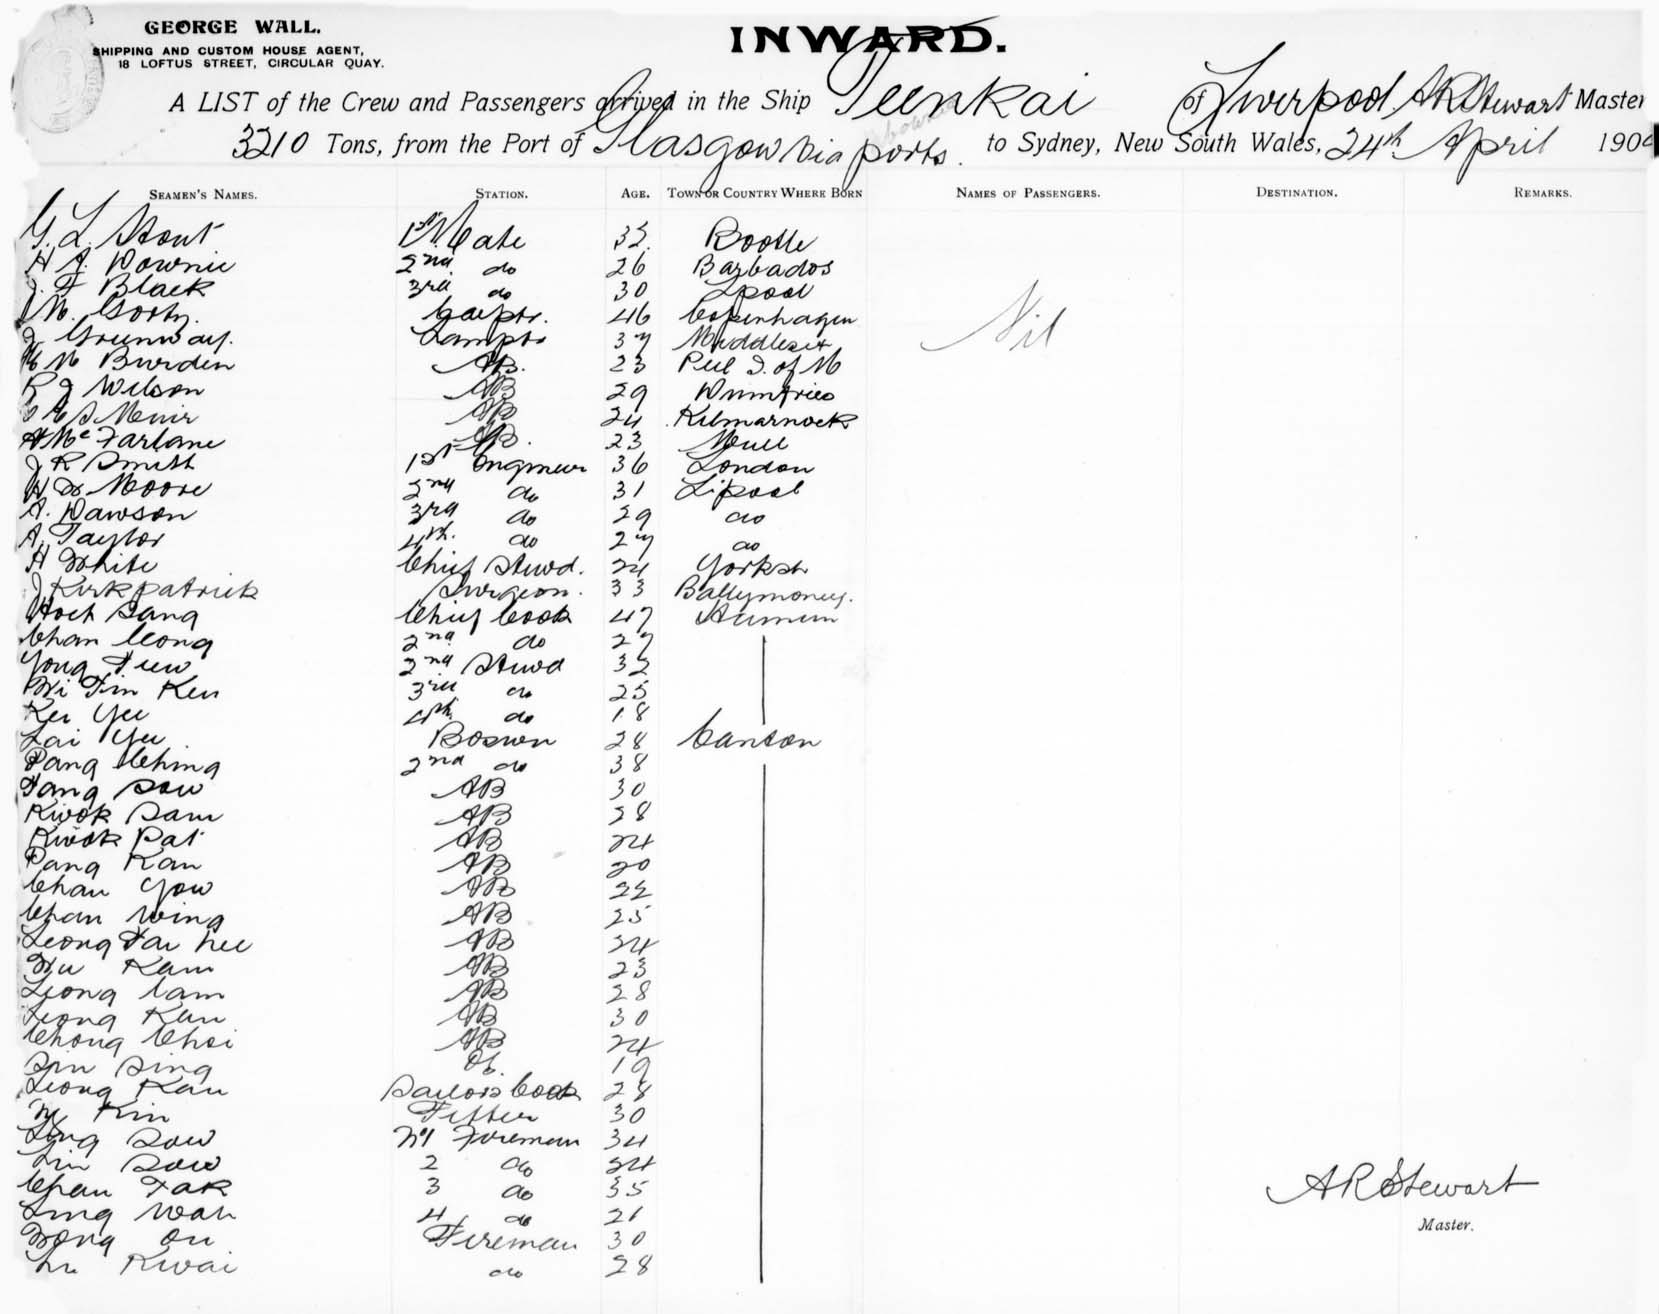 GEORGE WALL.
SHIPPING AND CUSTOM HOUSE AGENT,
18 LOFTUS STREET, CIRCULAR QUAY.
INWARD.
A LIST of the Crew and Passengers arrived in the Ship Teenkai of Liverpool A R Stewart Master
3210 Tons, from the Port of Glasgow via ports. to Sydney, New South Wales, 24th April 190
SEAMEN'S NAMES. STATION. AGE. TOWN OR COUNTRY WHERE BORN NAMES OF PASSENGERS. DESTINATION. REMARKS.
G. L. Stout 1st Mate 32 Bootle
H A. Downie 2nd do 26 Barbados
J. F Black 3rd do 30 Lpool
M. Carptr. 46 Copenhagen
J Greenway. Lamptr 37 Middlesex
Nil
M Burden AB. 23 Peel I. of M
R J Wilson AB 29 Dumfries
S Muir AB 24 Kilmarnock
A McFarlane AB. 23 Mull
J R Smith 1st Engineer 36 London
H W Moore 2nd do 31 Lipool
A. Dawson 3rd do 29 do
A. Taylor 4th. do 27 do
H White Chief Stewd. 24 Yorksh
J Kirkpatrick Surgeon. 33 Ballymoney.
Hoch Sang Chief Cook 47
Chan Cong 2nd do 27
Yong Fuw 2nd Stewd 32
Wi Tim Ken 3rd do 25
Kei Yee 4th. do 18
Lai Yee Boswn 28 Canton
Pang Ching 2nd do 38
Fang Sow AB 30
Kwok Sam AB 28
Kwok Pat AB 24
Pang Kan AB 20
Chan Yow AB 22
Chan Wing AB 25
Leong Tai Hee AB 24
Wu Kam AB 23
Leong Cam AB 28
Leong Kan AB 30
Chong Choi AB 24
Sin Sing 19
Leong Kau Sailors Cook 28
Kin Fitter 30
Ling Sow No1 Foreman 34
Lin Sow 2 do 24
Chan Tak 3 do 35
Ling Wah 4 do 26
Wong On Fireman 30
Kwai do 28
A R Stewart
Master.